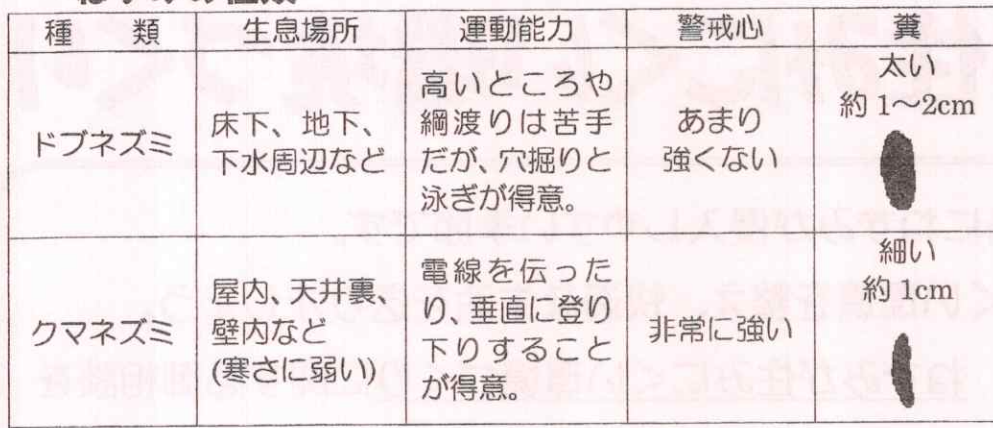 種　類 生息場所 運動能力 警戒心 糞
ドブネズミ
床下、地下、
下水周辺など
高いところや
綱渡りは苦手
だが、穴掘りと
泳ぎが得意。
あまり
強くない
太い
約 1～2cm
クマネズミ
屋内、天井裏、
壁内など
(寒さに弱い)
電線を伝った
り、垂直に登り
下りすること
が得意。
非常に強い
細い
約 1cm